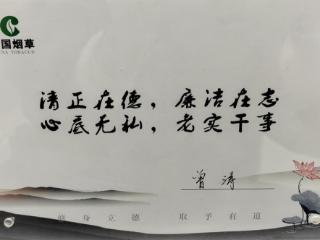 国烟草
清正在德，廉洁在志
心底无私，老实干事
曾涛
修身立德 取予有道